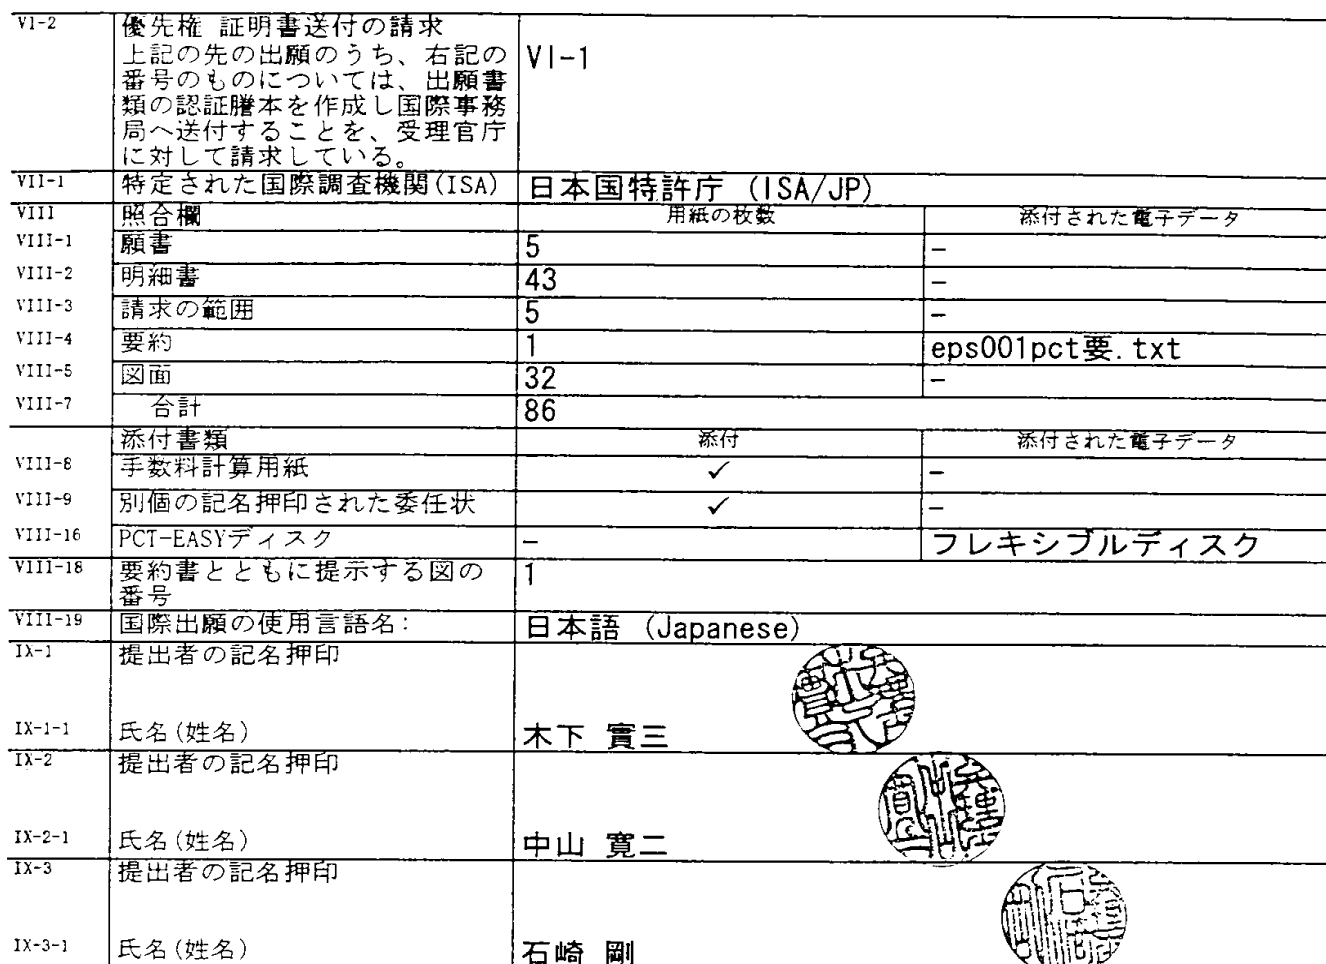 VI-2 優先権 証明書送付の請求
上記の先の出願のうち、右記の VI-1
番号のものについては、出願書
類の認証謄本を作成し国際事務
局へ送付することを、受理官庁
に対して請求している。
VII-1 特定された国際調査機関(ISA) 日本国特許庁 (ISA/JP)
VIII 照合欄 用紙の枚数 添付された電子データ
VIII-1 願書 5 -
VIII-2 明細書 43 -
VIII-3 請求の範囲 5 -
VIII-4 要約 1 eps001pct要.txt
VIII-5 図面 32 -
VIII-7 合計 86
添付書類 添付 添付された電子データ
VIII-8 手数料計算用紙 ✓ -
VIII-9 別個の記名押印された委任状 ✓ -
VIII-16 PCT-EASYディスク - フレキシブルディスク
VIII-18 要約書とともに提示する図の 1
番号
VIII-19 国際出願の使用言語名: 日本語 (Japanese)
IX-1 提出者の記名押印
IX-1-1 氏名(姓名) 木下 實三
IX-2 提出者の記名押印
IX-2-1 氏名(姓名) 中山 寛二
IX-3 提出者の記名押印
IX-3-1 氏名(姓名) 石崎 剛